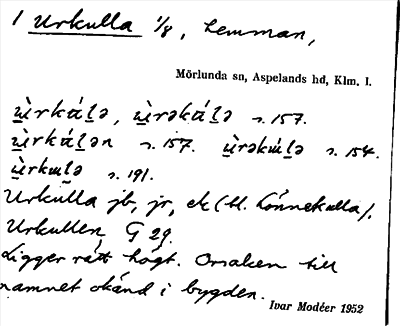 1 Urkulla 1/8, hemman,
Mörlunda sn, Aspelands hd, Klm. l.
ùrkáḻə, ùrəkáḻə s. 157.
ùrkáḻən s. 157. ùrəkúḻə s. 154.
s. 191.
Urkulla jb, jr, ek (bl. Lönnekulla),
Urkullen G 29.
Ligger rätt högt. Orsaken till
namnet okänd i bygden.
Ivar Modéer 1952